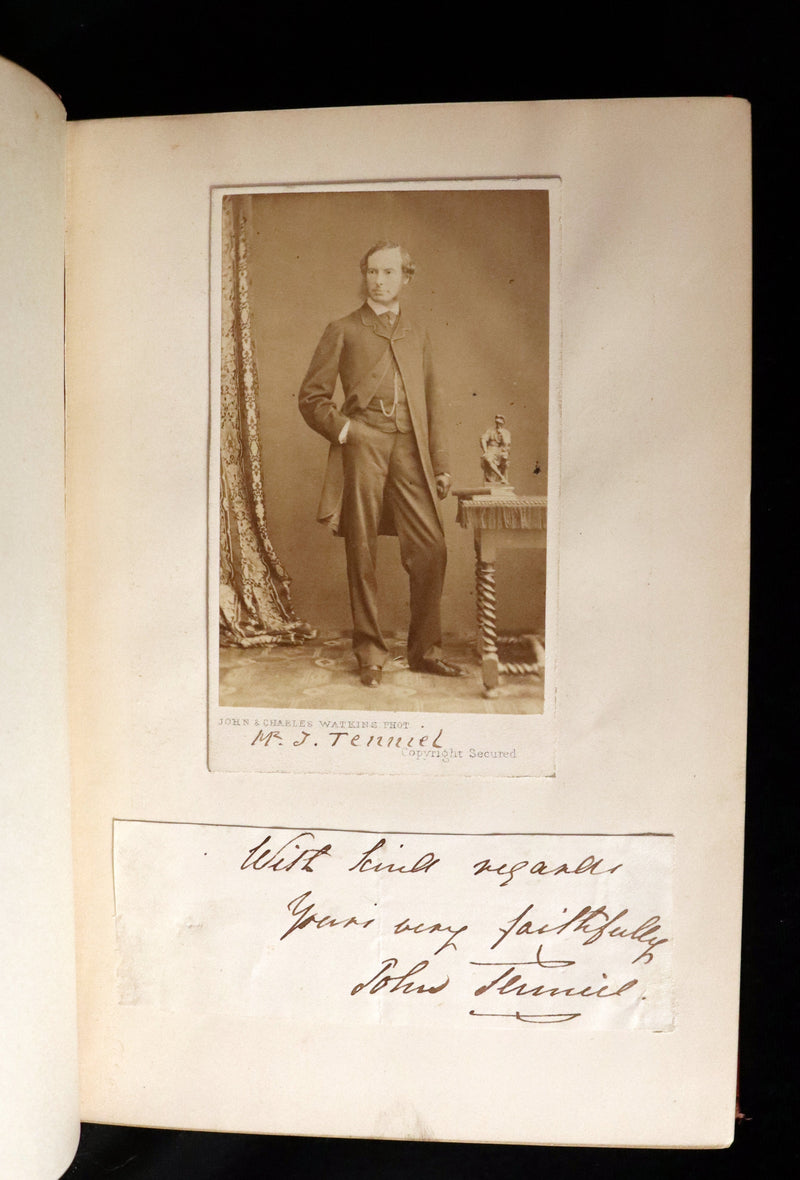 JOHN & CHARLES WATKINS PHOT.
Mr. J. Tenniel
Copyright Secured
With kind regards
Yours very faithfully
John Tenniel.